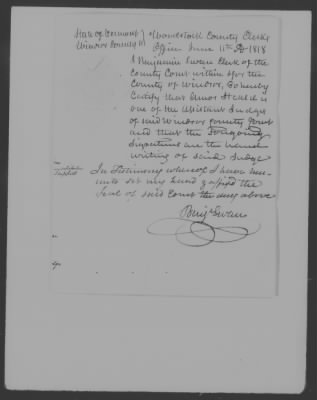 State of Vermont } Woodstock County Clerks
Windsor County SS } Office June 11th 1818
I Benjamin Swan Clerk of the
County Court within & for the
County of Windsor, Do hereby
Certify that Elmor is
one of the Assistant Judges
of said Windsor County Court
and that the foregoing
Signatures are the hand
writing of said Judge
In Testimony whereof I have here-
unto set my hand & affixed the
Seal of said Court the day above
Benj Swan